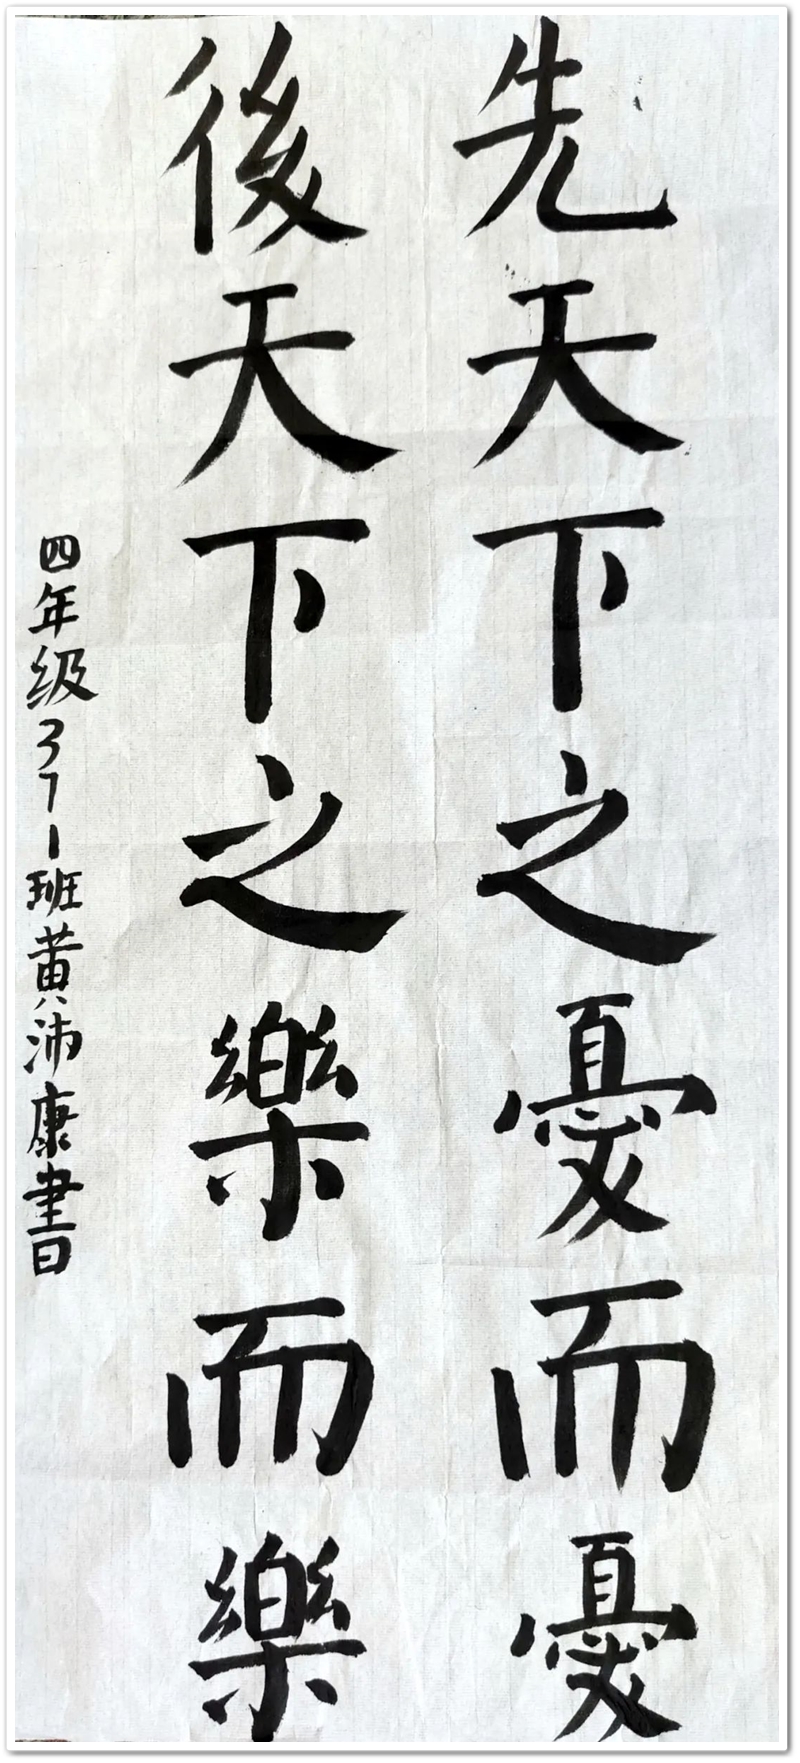 先天下之憂而憂
後天下之樂而樂
四年级371班黄沛康書